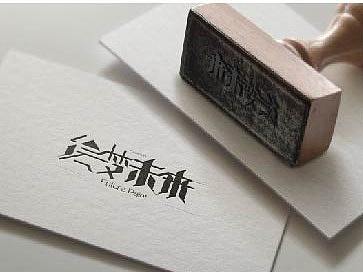 绘梦未来
Future